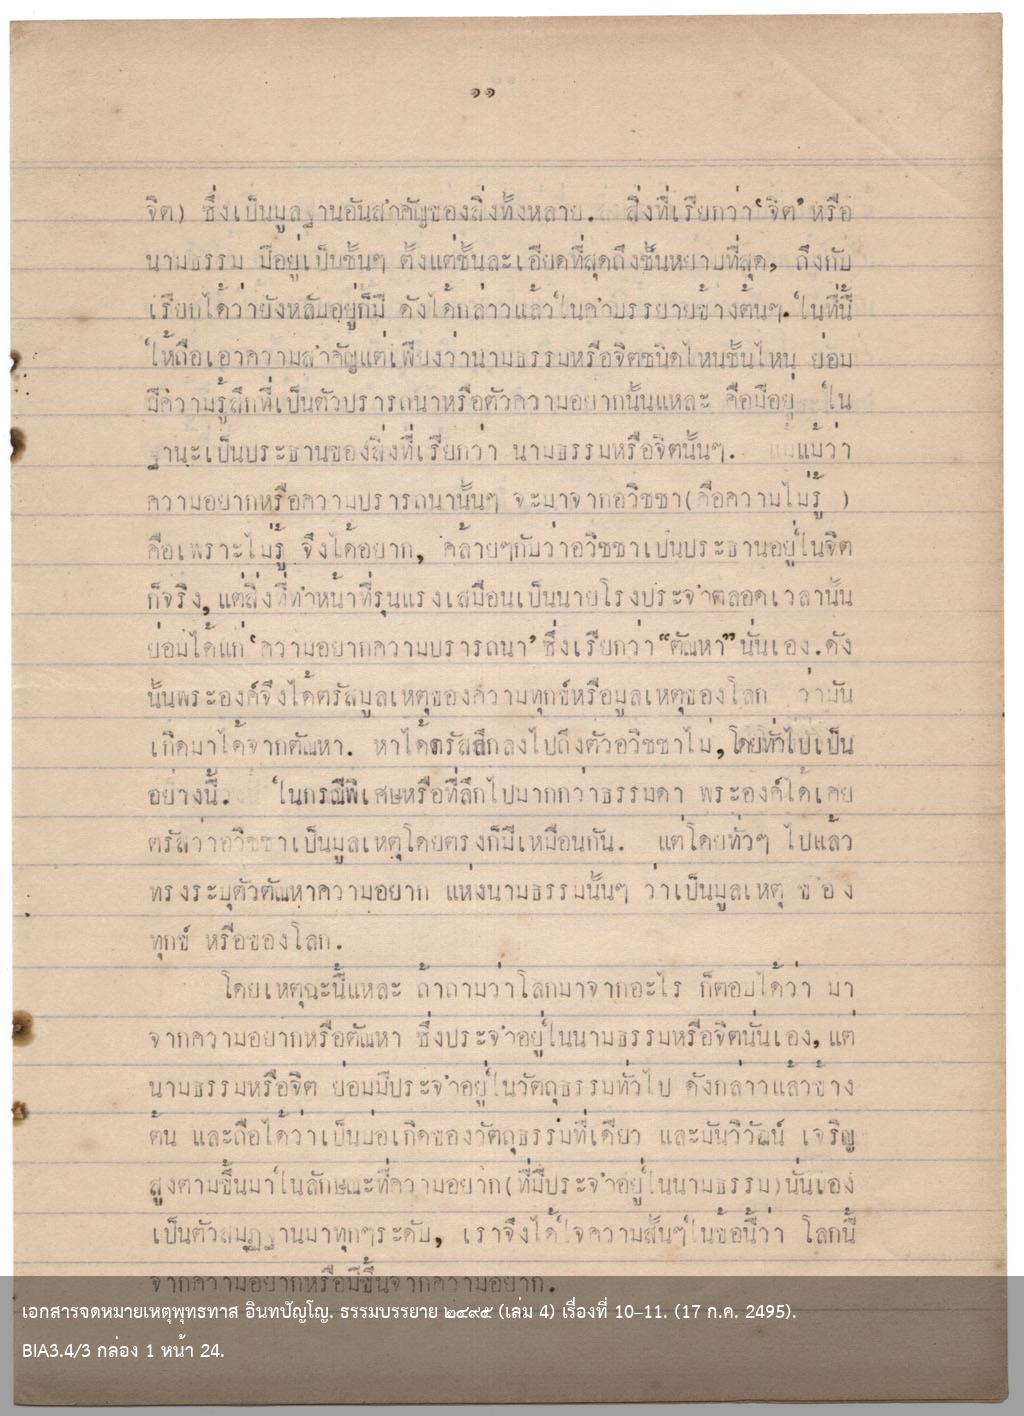 ๑๑
จิต) ซึ่งเป็นมูลฐานอันสำคัญของสิ่งทั้งหลาย. สิ่งที่เรียกว่า‘จิต’หรือ
นามธรรม มีอยู่เป็นชั้นๆ ตั้งแต่ชั้นละเอียดที่สุดถึงชั้นหยาบที่สุด, ถึงกับ
เรียกได้ว่ายังหลับอยู่ก็มี ดังได้กล่าวแล้วในคำบรรยายข้างต้นๆ. ในที่นี้
ให้ถือเอาความสำคัญแต่เพียงว่านามธรรมหรือจิตชนิดไหนชั้นไหน ย่อม
มีความรู้สึกที่เป็นตัวปรารถนาหรือตัวความอยากนั้นแหละ คือมีอยู่ ใน
ฐานะเป็นประธานของสิ่งที่เรียกว่า นามธรรมหรือจิตนั้นๆ. แม้ว่า
ความอยากหรือความปรารถนานั้นๆ จะมาจากอวิชชา(คือความไม่รู้ )
คือเพราะไม่รู้ จึงได้อยาก, คล้ายๆกับว่าอวิชชาเป็นประธานอยู่ในจิต
ก็จริง, แต่สิ่งที่ทำหน้าที่รุนแรงเสมือนเป็นนายโรงประจำตลอดเวลานั้น
ย่อมได้แก่‘ความอยากความปรารถนา’ซึ่งเรียกว่า“ตัณหา”นั่นเอง.ดัง
นั้นพระองค์จึงได้ตรัสมูลเหตุของความทุกข์หรือมูลเหตุของโลก ว่ามัน
เกิดมาได้จากตัณหา. หาได้ตรัสลึกลงไปถึงตัวอวิชชาไม่,โดยทั่วไปเป็น
อย่างนี้. ในกรณีพิเศษหรือที่ลึกไปมากกว่าธรรมดา พระองค์ได้เคย
ตรัสว่าอวิชชาเป็นมูลเหตุโดยตรงก็มีเหมือนกัน. แต่โดยทั่วๆ ไปแล้ว
ทรงระบุตัวตัณหาความอยาก แห่งนามธรรมนั้นๆ ว่าเป็นมูลเหตุ ของ
ทุกข์ หรือของโลก.
โดยเหตุฉะนี้แหละ ถ้าถามว่าโลกมาจากอะไร ก็ตอบได้ว่า มา
จากความอยากหรือตัณหา ซึ่งประจำอยู่ในนามธรรมหรือจิตนั่นเอง, แต่
นามธรรมหรือจิต ย่อมมีประจำอยู่ในวัตถุธรรมทั่วไป ดังกล่าวแล้วข้าง
ต้น และถือได้ว่าเป็นบ่อเกิดของวัตถุธรรมที่เดียว และมันวิวัฒน์ เจริญ
สูงตามขึ้นมาในลักษณะที่ความอยาก(ที่มีประจำอยู่ในนามธรรม)นั่นเอง
เป็นตัวสมุฏฐานมาทุกๆระดับ, เราจึงได้ใจความสั้นๆในข้อนี้ว่า โลกนี้
จากความอยากหรือมีขึ้นจากความอยาก.
เอกสารจดหมายเหตุพุทธทาส อินทปัญโญ. ธรรมบรรยาย ๒๔๙๕ (เล่ม 4) เรื่องที่ 10–11. (17 ก.ค. 2495).
BIA3.4/3 กล่อง 1 หน้า 24.